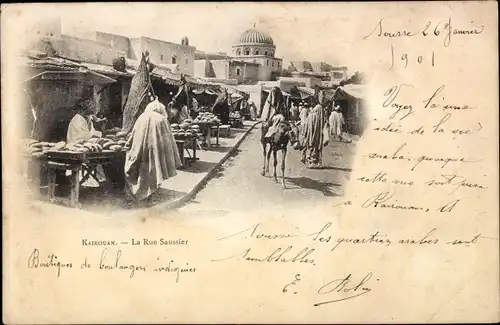 Sousse 26 Janvier
1901
Voyez, l'a une
idée de la vie
arabe, quoique
cette vue soit prise à
Kairouan. A
Sousse, les quartiers arabes sont
semblables.
E.
KAIROUAN. — LA RUE SAUSSIER
Boutiques de boulangers indigènes